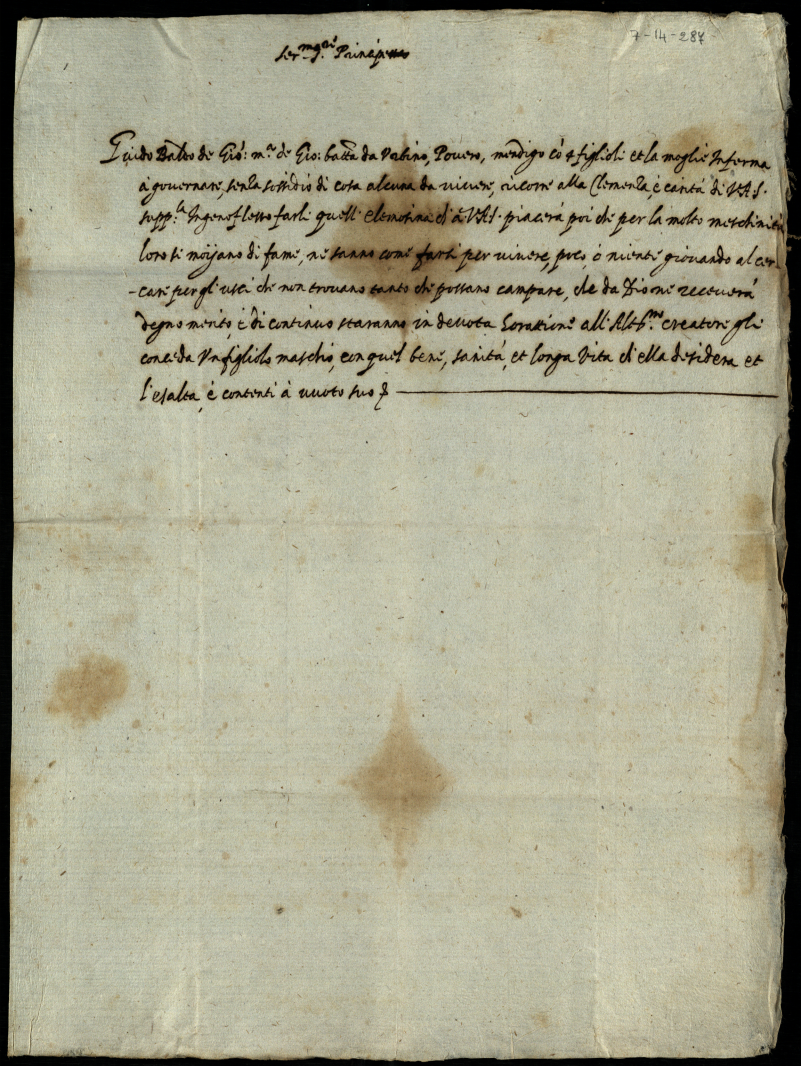 7-14-287
Ser.^ma
Guido Baldo de Gio: m.^a de Gio: batta da Urbino, Povero, mendigo cō 4 figlioli et la moglie Inferma
à governare, senza sossidio di cosa alcuna da vivere, ricorre alla Clemenza, è carità di V.A.S.
supp.^la Ingenoflesso farli quell'elemosina ch'à V.A.S. piacerà poi che per la molto meschinità
loro si moijano di fame, ne sanno come farsi per vivere, poco, ò niente giovando al cer-
-care per gl'usci che non trovano tanto che possano campare, che da Dio ne receverà
degno merito, è di continuo staranno in devota horattione all'Altis.^mo creatore gli
conceda Un figliolo maschio, con quel bene, sanità, et longa Vita ch'ella desidera et
l'esalta, è contenti à vuoto suo